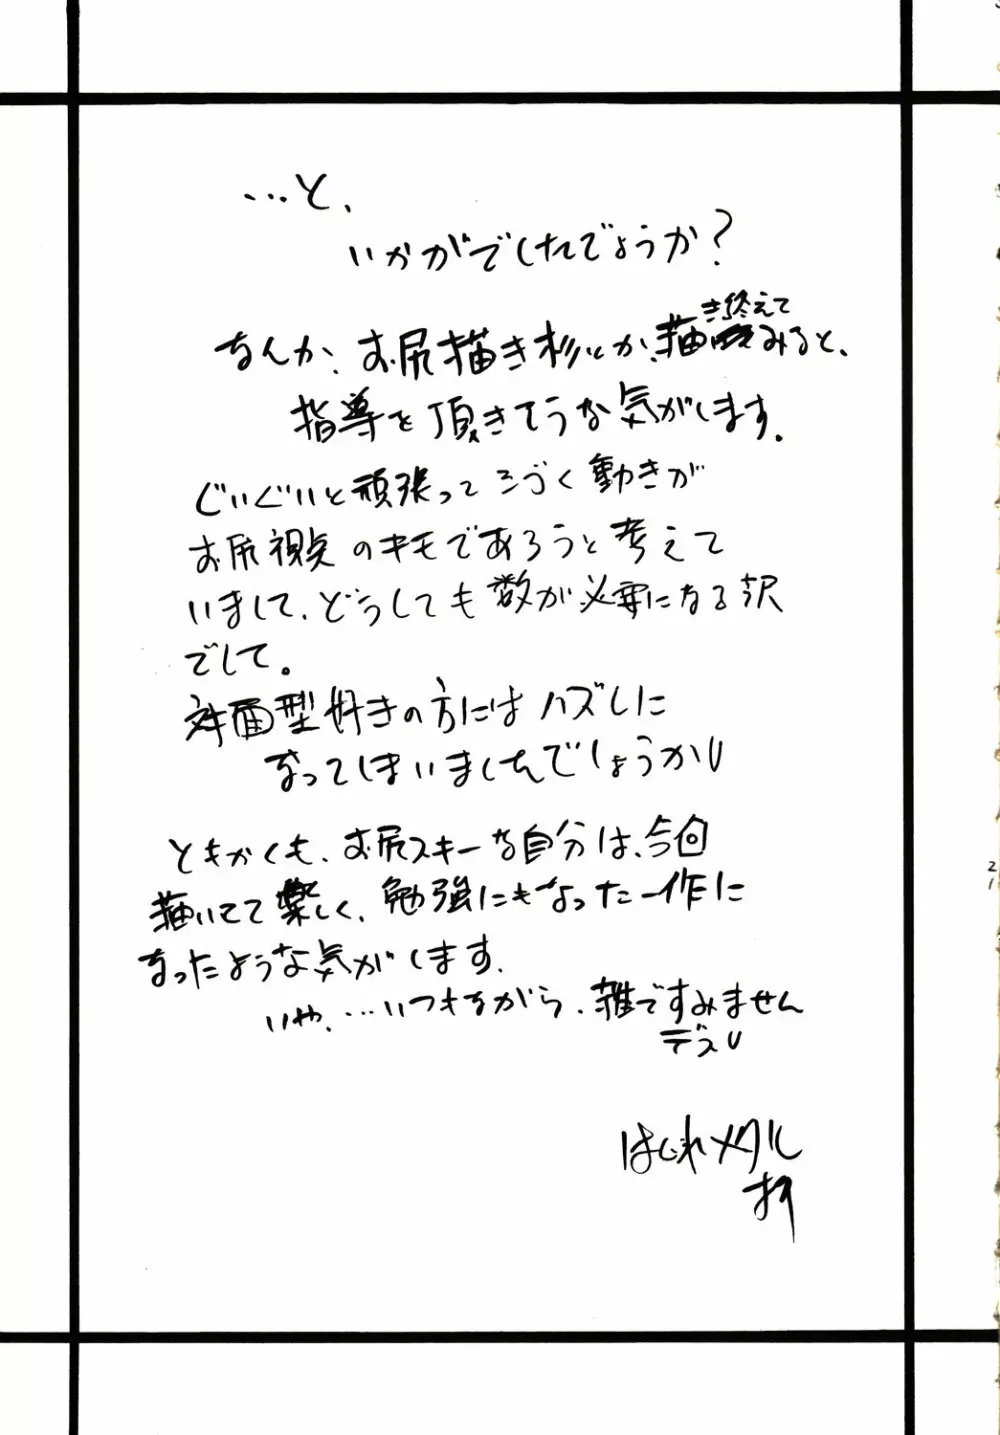 …と、
いかがでしたでしょうか?
なんか、お尻描き杉とか、描き終えてみると、
指導を頂きそうな気がします。
ぐいぐいと頑張って うごく動きが
お尻視点のキモであろうと考えて
いまして、どうしても数が必要になる訳
でして。
対面型好きの方にはハズしに
なってしまいましたでしょうか
ともかくも、お尻スキーな自分は、今回
描いてて楽しく、勉強にもなった一作に
なったような気がします。
いや、…いつもながら、雑ですみません
デス
はじれメタル
21